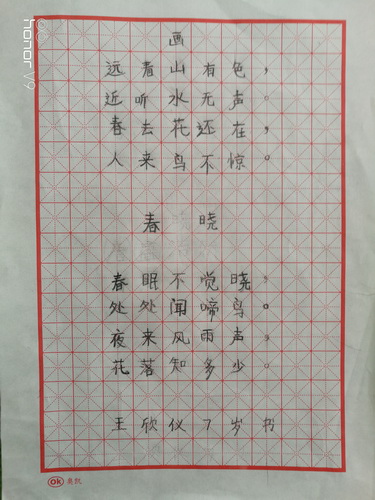 画
远看山有色，
近听水无声。
春去花还在，
人来鸟不惊。
春晓
春眠不觉晓。
处处闻啼鸟。
夜来风雨声，
花落知多少。
王欣仪7岁书
ok 奥凯
honor V9